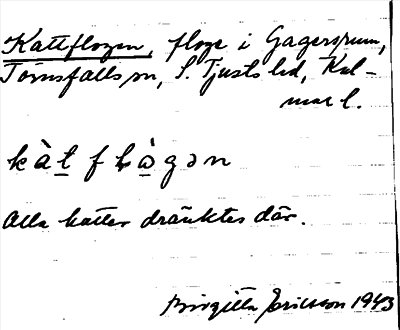 Kattflogen, floge i Gagersrum,
Törnsfalls sn, S. Tjusts hd, Kal-
mar l.
kàt flògən
Alla katter dränktes där.
Birgitta Ericsson 1943